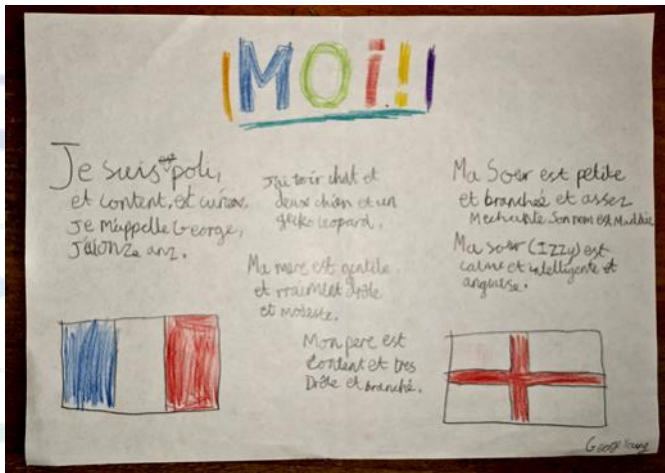 MOi!!
Je suis poli,
et content, est curieux,
Je m'appelle George,
j'ai onze anz.
J'ai troir chat et
deux chien et un
gecko leopard.
Ma mere est gentile
et vraiment drole
et modeste.
Mon pere est
content et tres
Drôle et branché.
Ma Soeur est petite
et branchée et assez
Mechante Son nom est Maddie
Ma soeur (Izzy) est
calme et intelligente et
anglaise.
George Young